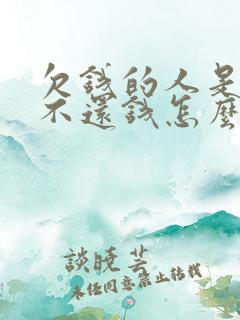 欠錢的人是
不還錢怎麼
談曉芸
未經同意禁止轉載